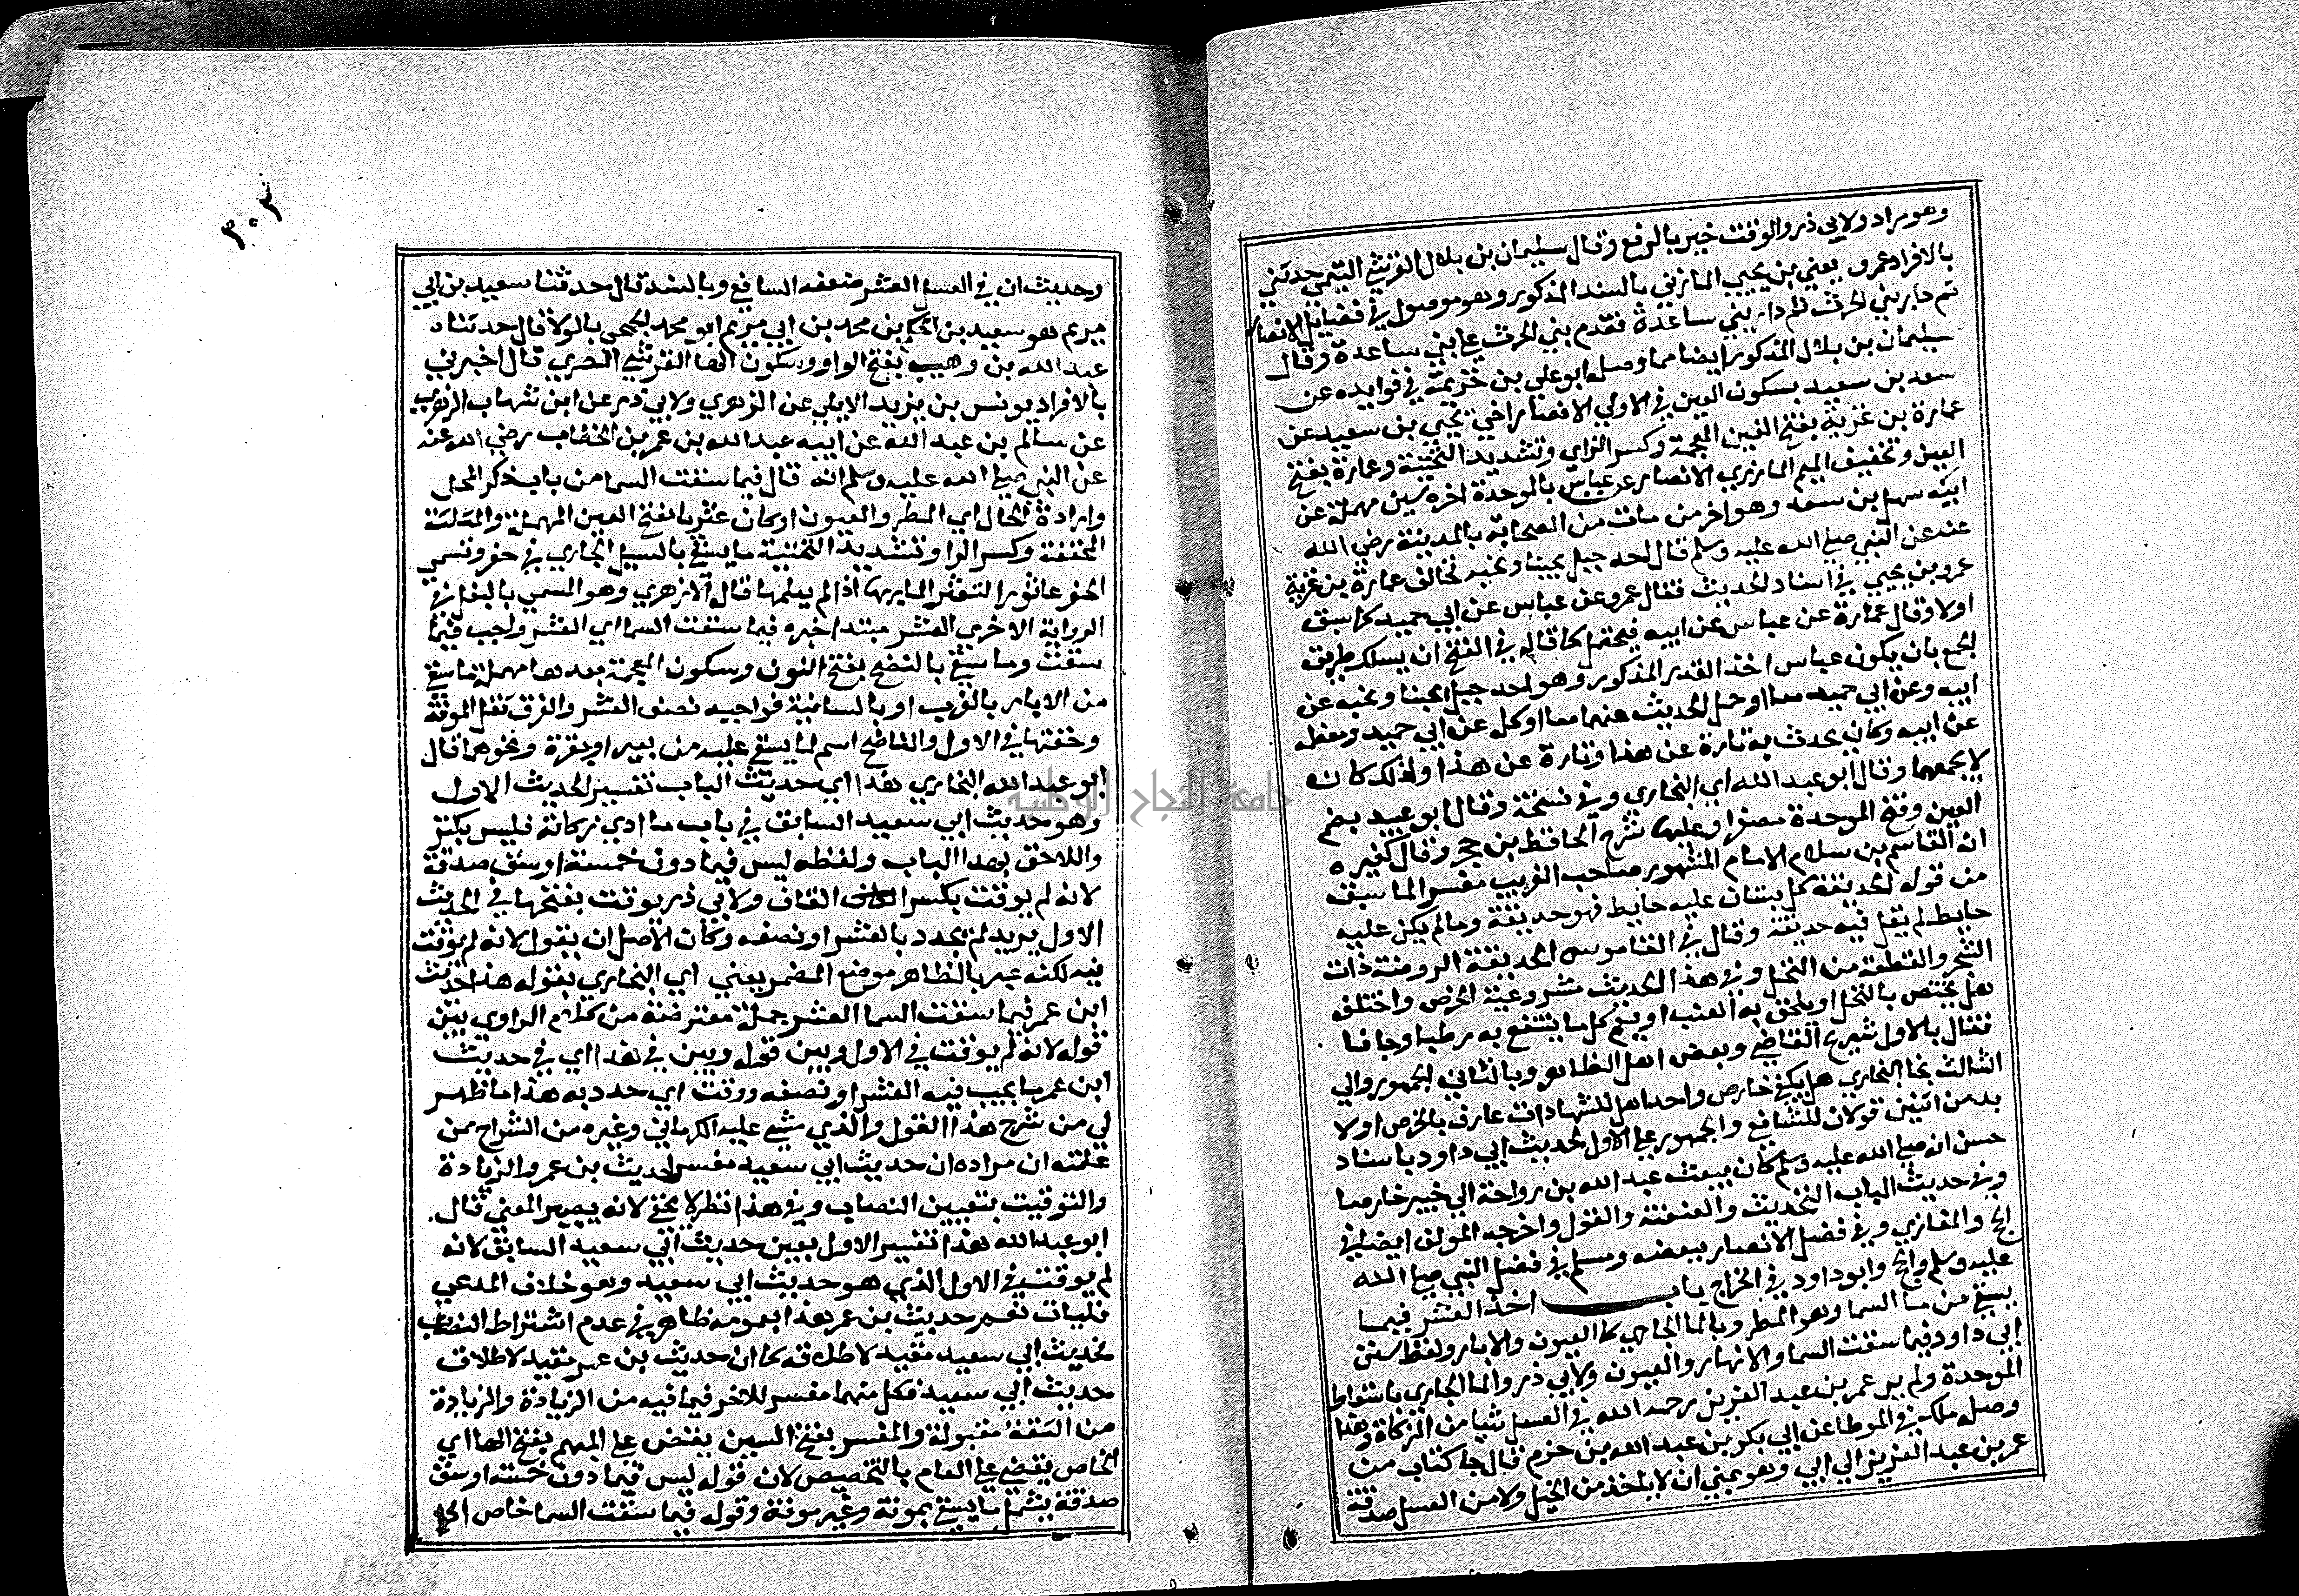 وهو مراد ولابي ذر والوقت خير بالرفع وقال سليمان بن بلال القرشي التيمي حدثني
بالافراد عمرو يعني بن يحيي المازني بالسند المذكور وهو موصول في فضايل الانصار
ثم دار بني الحرث ثم دار بني ساعدة فقدم بني الحرث علي بني ساعدة وقال
سليمان بن بلال المذكور ايضا مما وصله ابو علي بن خزيمة في فوايده عن
سعد بن سعيد بسكون العين في الاولي الانصاري اخي يحيي بن سعيد عن
عمارة بن غزية بفتح الغين المعجمة وكسر الزاي وتشديد التحتية وعمارة بفتح
العين وتخفيف الميم المازني الانصاري عن عباس بالموحدة اخره سين مهملة عن
ابيه سهل بن سعد وهو اخر من مات من الصحابة بالمدينة رضي الله
عنه عن النبي صلي الله عليه وسلم قال احد جبل يحبنا ونحبه فخالف عمارة بن غزية
عمرو بن يحيي في اسناد الحديث فقال عمرو عن عباس عن ابي حميد كما سبق
اولا وقال عمارة عن عباس عن ابيه فيحتمل كما قاله في الفتح ان يسلك طريق
الجمع بان يكون عباس اخذ القدر المذكور وهو احد جبل يحبنا ونحبه عن
ابيه وعن ابي حميد معا او حمل الحديث عنهما معا او كله عن ابي حميد ومعظمه
عن ابيه وكان يحدث به تارة عن هذا وتارة عن هذا ولذلك كان
لا يجمعهما وقال ابو عبد الله اي البخاري وفي نسخة وقال ابو عبيد بضم
العين وفتح الموحدة مصغرا وعليها شرح الحافظ بن حجر وقال كغيره
انه القاسم بن سلام الامام المشهور صاحب الغريب مفسرا لما سبق
من قوله الحديقة كل بستان عليه حايط فهو حديقة وما لم يكن عليه
حايط لم يقل فيه حديقة وقال في القاموس الحديقة الروضة ذات
الشجر والقطعة من النخل وفي هذا الحديث مشروعية الخرص واختلف
هل يختص بالنخل او يلحق به العنب او يعم كل ما ينتفع به رطبا وجافا
فقال بالاول شريح القاضي وبعض اهل الظاهر وبالثاني الجمهور والي
الثالث نحا البخاري هل يكفي خارص واحد اهل للشهادات عارف بالخرص او لا
بد من اثنين قولان للشافعي والجمهور علي الاول لحديث ابي داود باسناد
حسن انه صلي الله عليه وسلم كان يبعث عبد الله بن رواحة الي خيبر خارصا
وفي حديث الباب التحديث والعنعنة والقول واخرجه المولف ايضا في
الحج والمغازي وفي فضل الانصار ببعضه ومسلم في فضل النبي صلي الله
عليه وسلم والحج وابو داود في الخراج باب اخذ العشر فيما
يسقي من ما السما وهو المطر وبالما الجاري كما العيون والابار ولفظ سنن
ابي داود فيما سقت السما والانهار والعيون ولابي ذر والما الجاري باسقاط
الموحدة ولم ير عمر بن عبد العزيز رحمه الله في العسل شيا من الزكاة وهذا
وصله ملك في الموطا عن ابي بكر بن عبد الله بن حزم قال جا كتاب من
عمر بن عبد العزيز الي ابي وهو بمني ان لا ياخذ من الخيل ولا من العسل صدقة
٣٠٣
وحديث ان في العسل العشر ضعفه الشافعي وبالسند قال حدثنا سعيد بن ابي
مريم هو سعيد بن الحكم بن محمد بن ابي مريم ابو محمد الجمحي بالولا قال حدثنا
عبد الله بن وهب بفتح الواو وسكون الها القرشي المصري قال اخبرني
بالافراد يونس بن يزيد الايلي عن الزهري ولابي ذر عن ابن شهاب الزهري
عن سالم بن عبد الله عن ابيه عبد الله بن عمر بن الخطاب رضي الله عنه
عن النبي صلي الله عليه وسلم انه قال فيما سقت السما من باب ذكر المحل
وارادة الحال اي المطر والعيون او كان عثريا بفتح العين المهملة والمثلثة
المخففة وكسر الرا وتشديد التحتية ما يسقي بالسيل الجاري في حفر وتسمي
الحفر عاثورا لتعثر المار بها اذا لم يعلمها قال الازهري وهو المسمي بالبعل في
الرواية الاخري العشر مبتدا خبره فيما سقت السما اي العشر واجب فيما
سقت وما سقي بالنضح بفتح النون وسكون المعجمة بعدها مهملة ما سقي
من الابار بالغرب او بالسانية فواجبه نصف العشر والفرق ثقل المونة
وخفتها في الاول والناضح اسم لما يسقي عليه من بعير او بقرة ونحوهما قال
ابو عبد الله البخاري هذا اي حديث الباب تفسير الحديث الاول
وهو حديث ابي سعيد السابق في باب ما ادي زكاته فليس بكنز
واللاحق بهذا الباب ولفظه ليس فيما دون خمسة اوسق صدقة
لانه لم يوقت بكسر القاف ولابي ذر يوقت بفتحها في الحديث
الاول يريد لم يحدد بالعشر او نصفه وكان الاصل ان يقول لانه لم يوقت
فيه لكنه عبر بالظاهر موضع المضمر يعني اي البخاري بقوله هذا حديث
ابن عمر فيما سقت السما العشر جملة معترضة من كلام الراوي بين
قوله لانه لم يوقت في الاول وبين قوله وبين في هذا اي في حديث
ابن عمر ما يجب فيه العشر او نصفه ووقت اي حدد به هذا ما ظهر
لي من شرح هذا القول والذي مشي عليه الكرماني وغيره من الشراح ممن
علمته ان مراده ان حديث ابي سعيد مفسر لحديث بن عمر والزيادة
والتوقيت بتعيين النصاب وفي هذا نظر لا يخفي لانه يصير المعني قال
ابو عبد الله هذا تفسير الاول يعني حديث ابي سعيد السابق لانه
لم يوقت في الاول الذي هو حديث ابي سعيد وهو خلاف المدعي
فليتامل نعم حديث بن عمر هذا بعمومه ظاهر في عدم اشتراط النصاب
فحديث ابي سعيد مقيد لاطلاقه كما ان حديث بن عمر مقيد لاطلاق
حديث ابي سعيد فكل منهما مفسر للاخر فيما فيه من الزيادة والزيادة
من الثقة مقبولة والمفسر بفتح السين يقضي علي المبهم بفتح الها اي
الخاص يقضي علي العام بالتخصيص لان قوله ليس فيما دون خمسة اوسق
صدقة يشمل ما يسقي بمونة وغير مونة وقوله فيما سقت السما خاص الخ
جامعة النجاح الوطنية